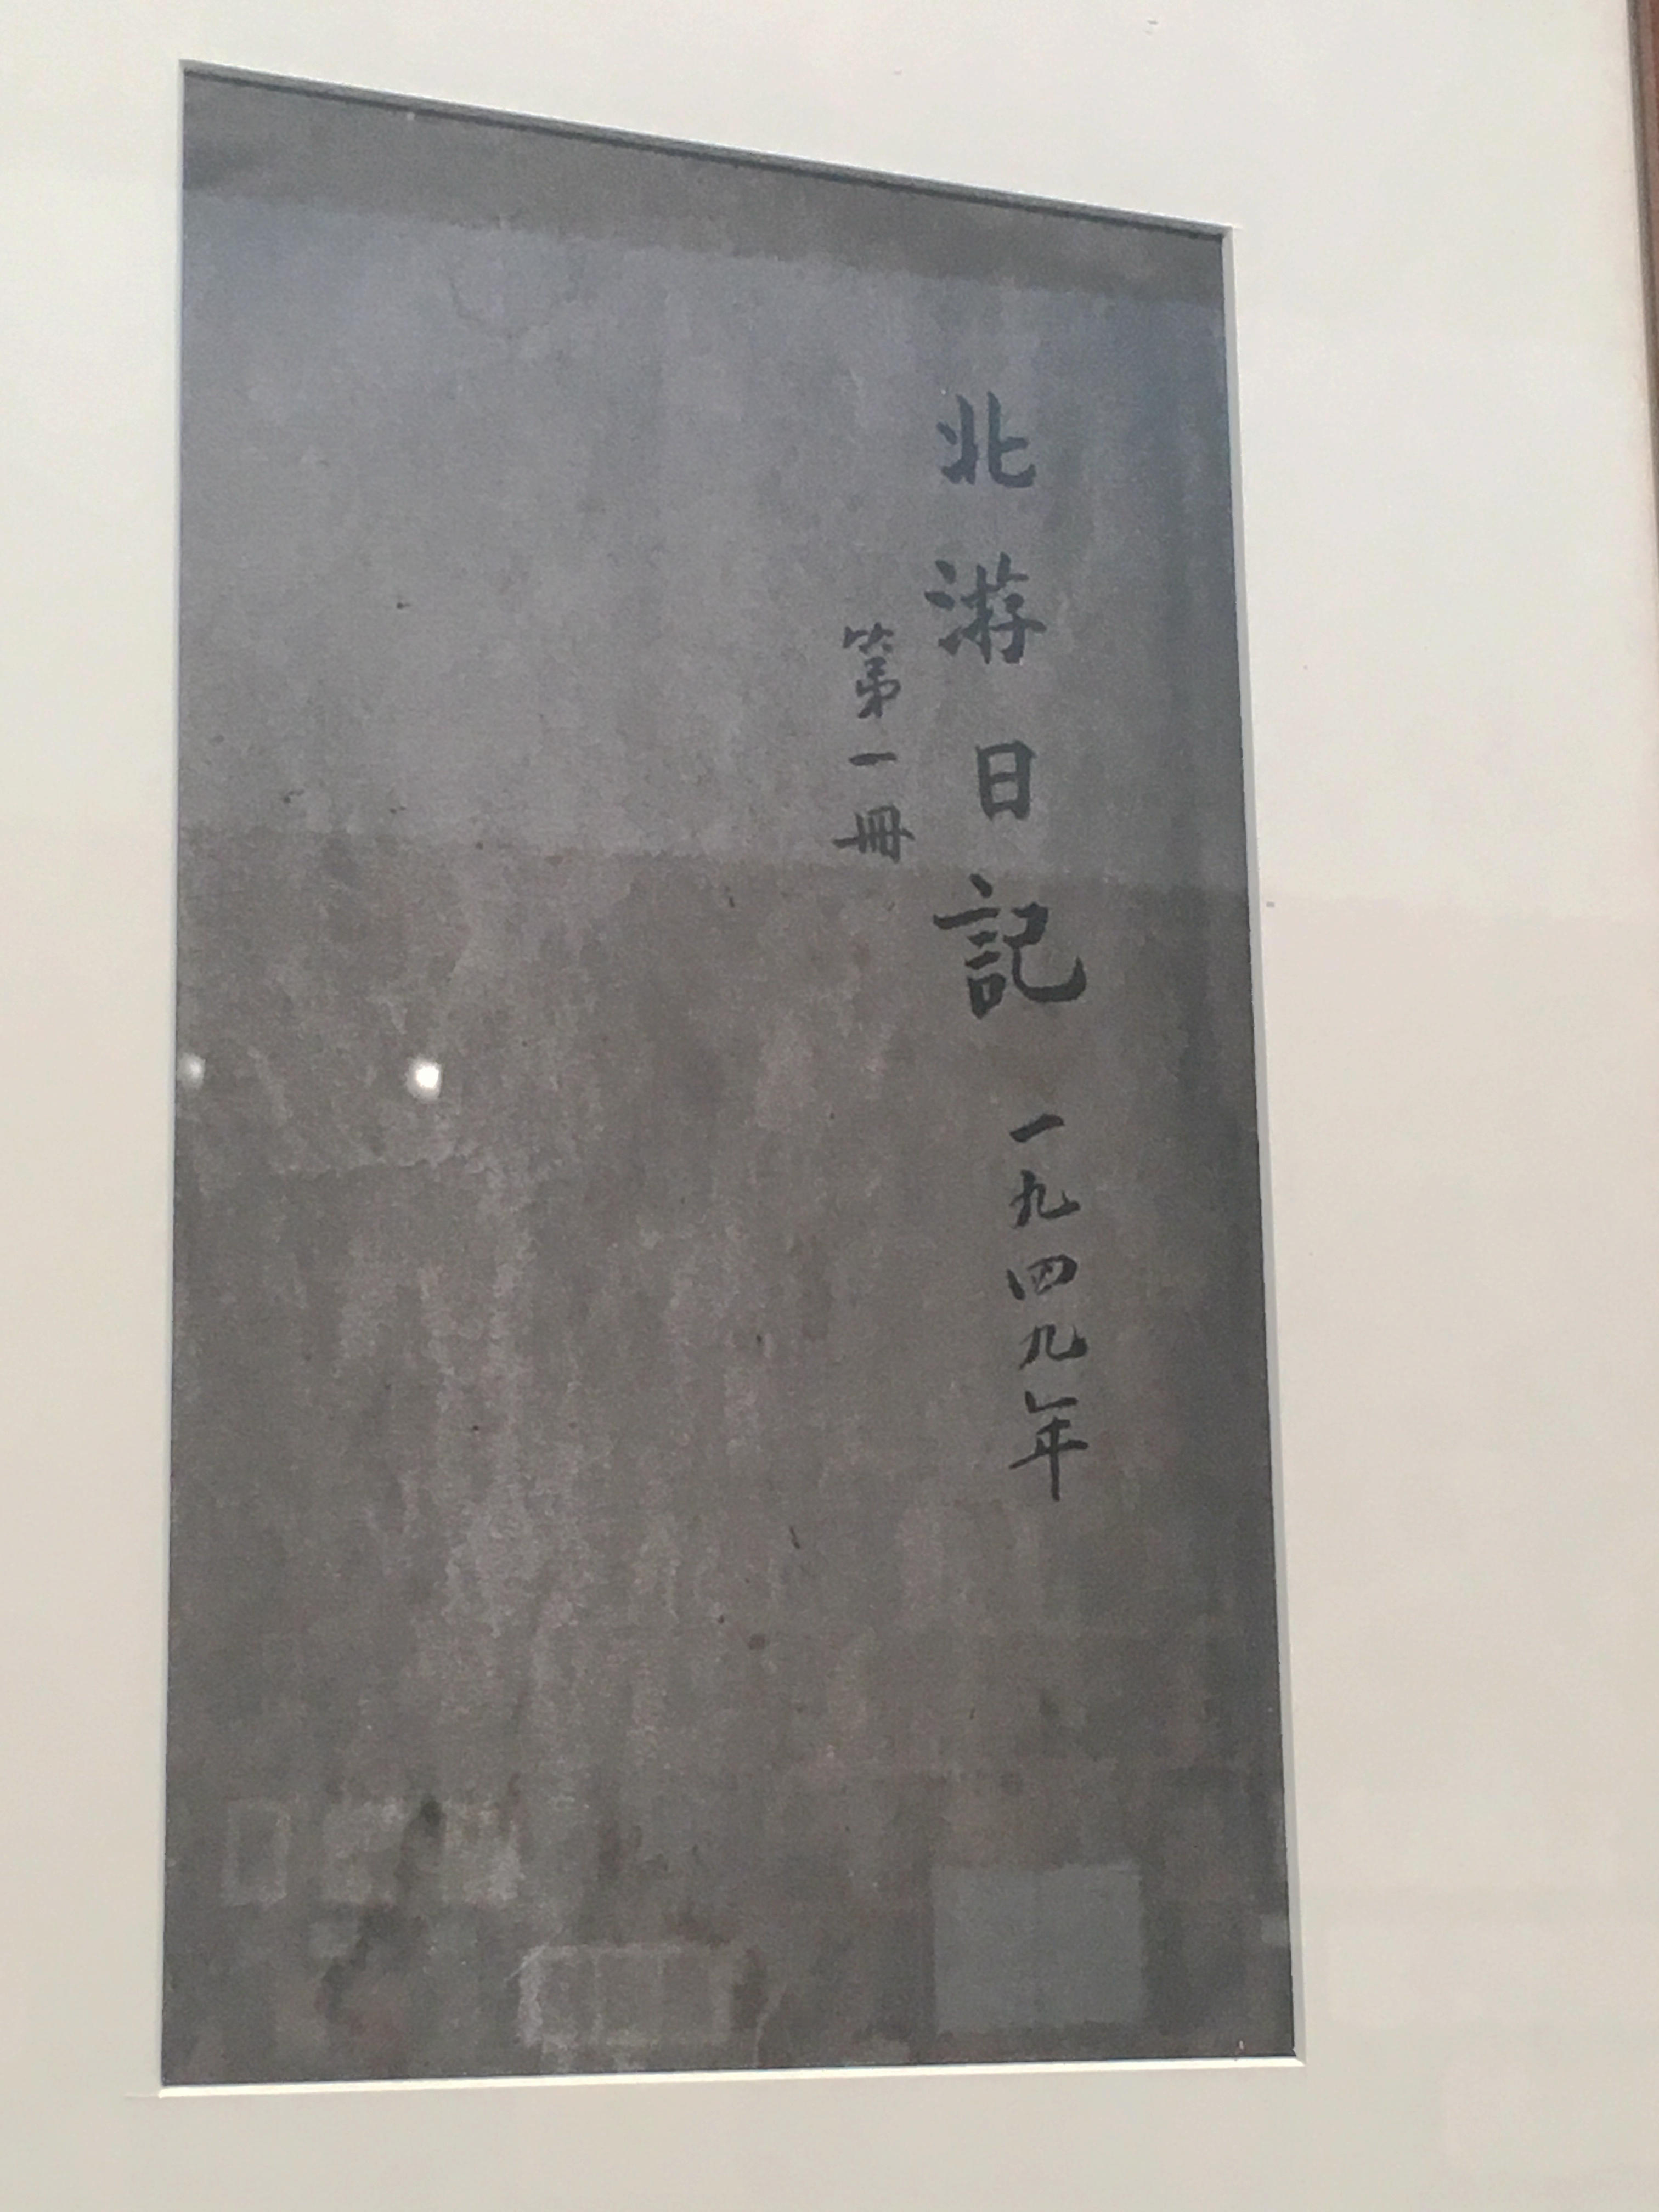 北游日記 一九四九年
第一冊